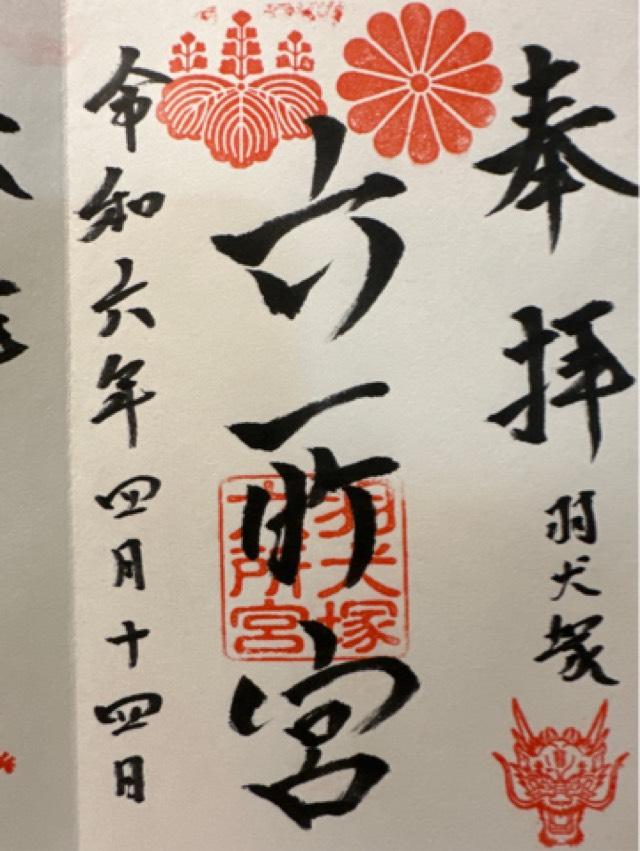 奉拝
羽犬塚
六所宮
羽犬塚
六所宮
令和六年四月十四日